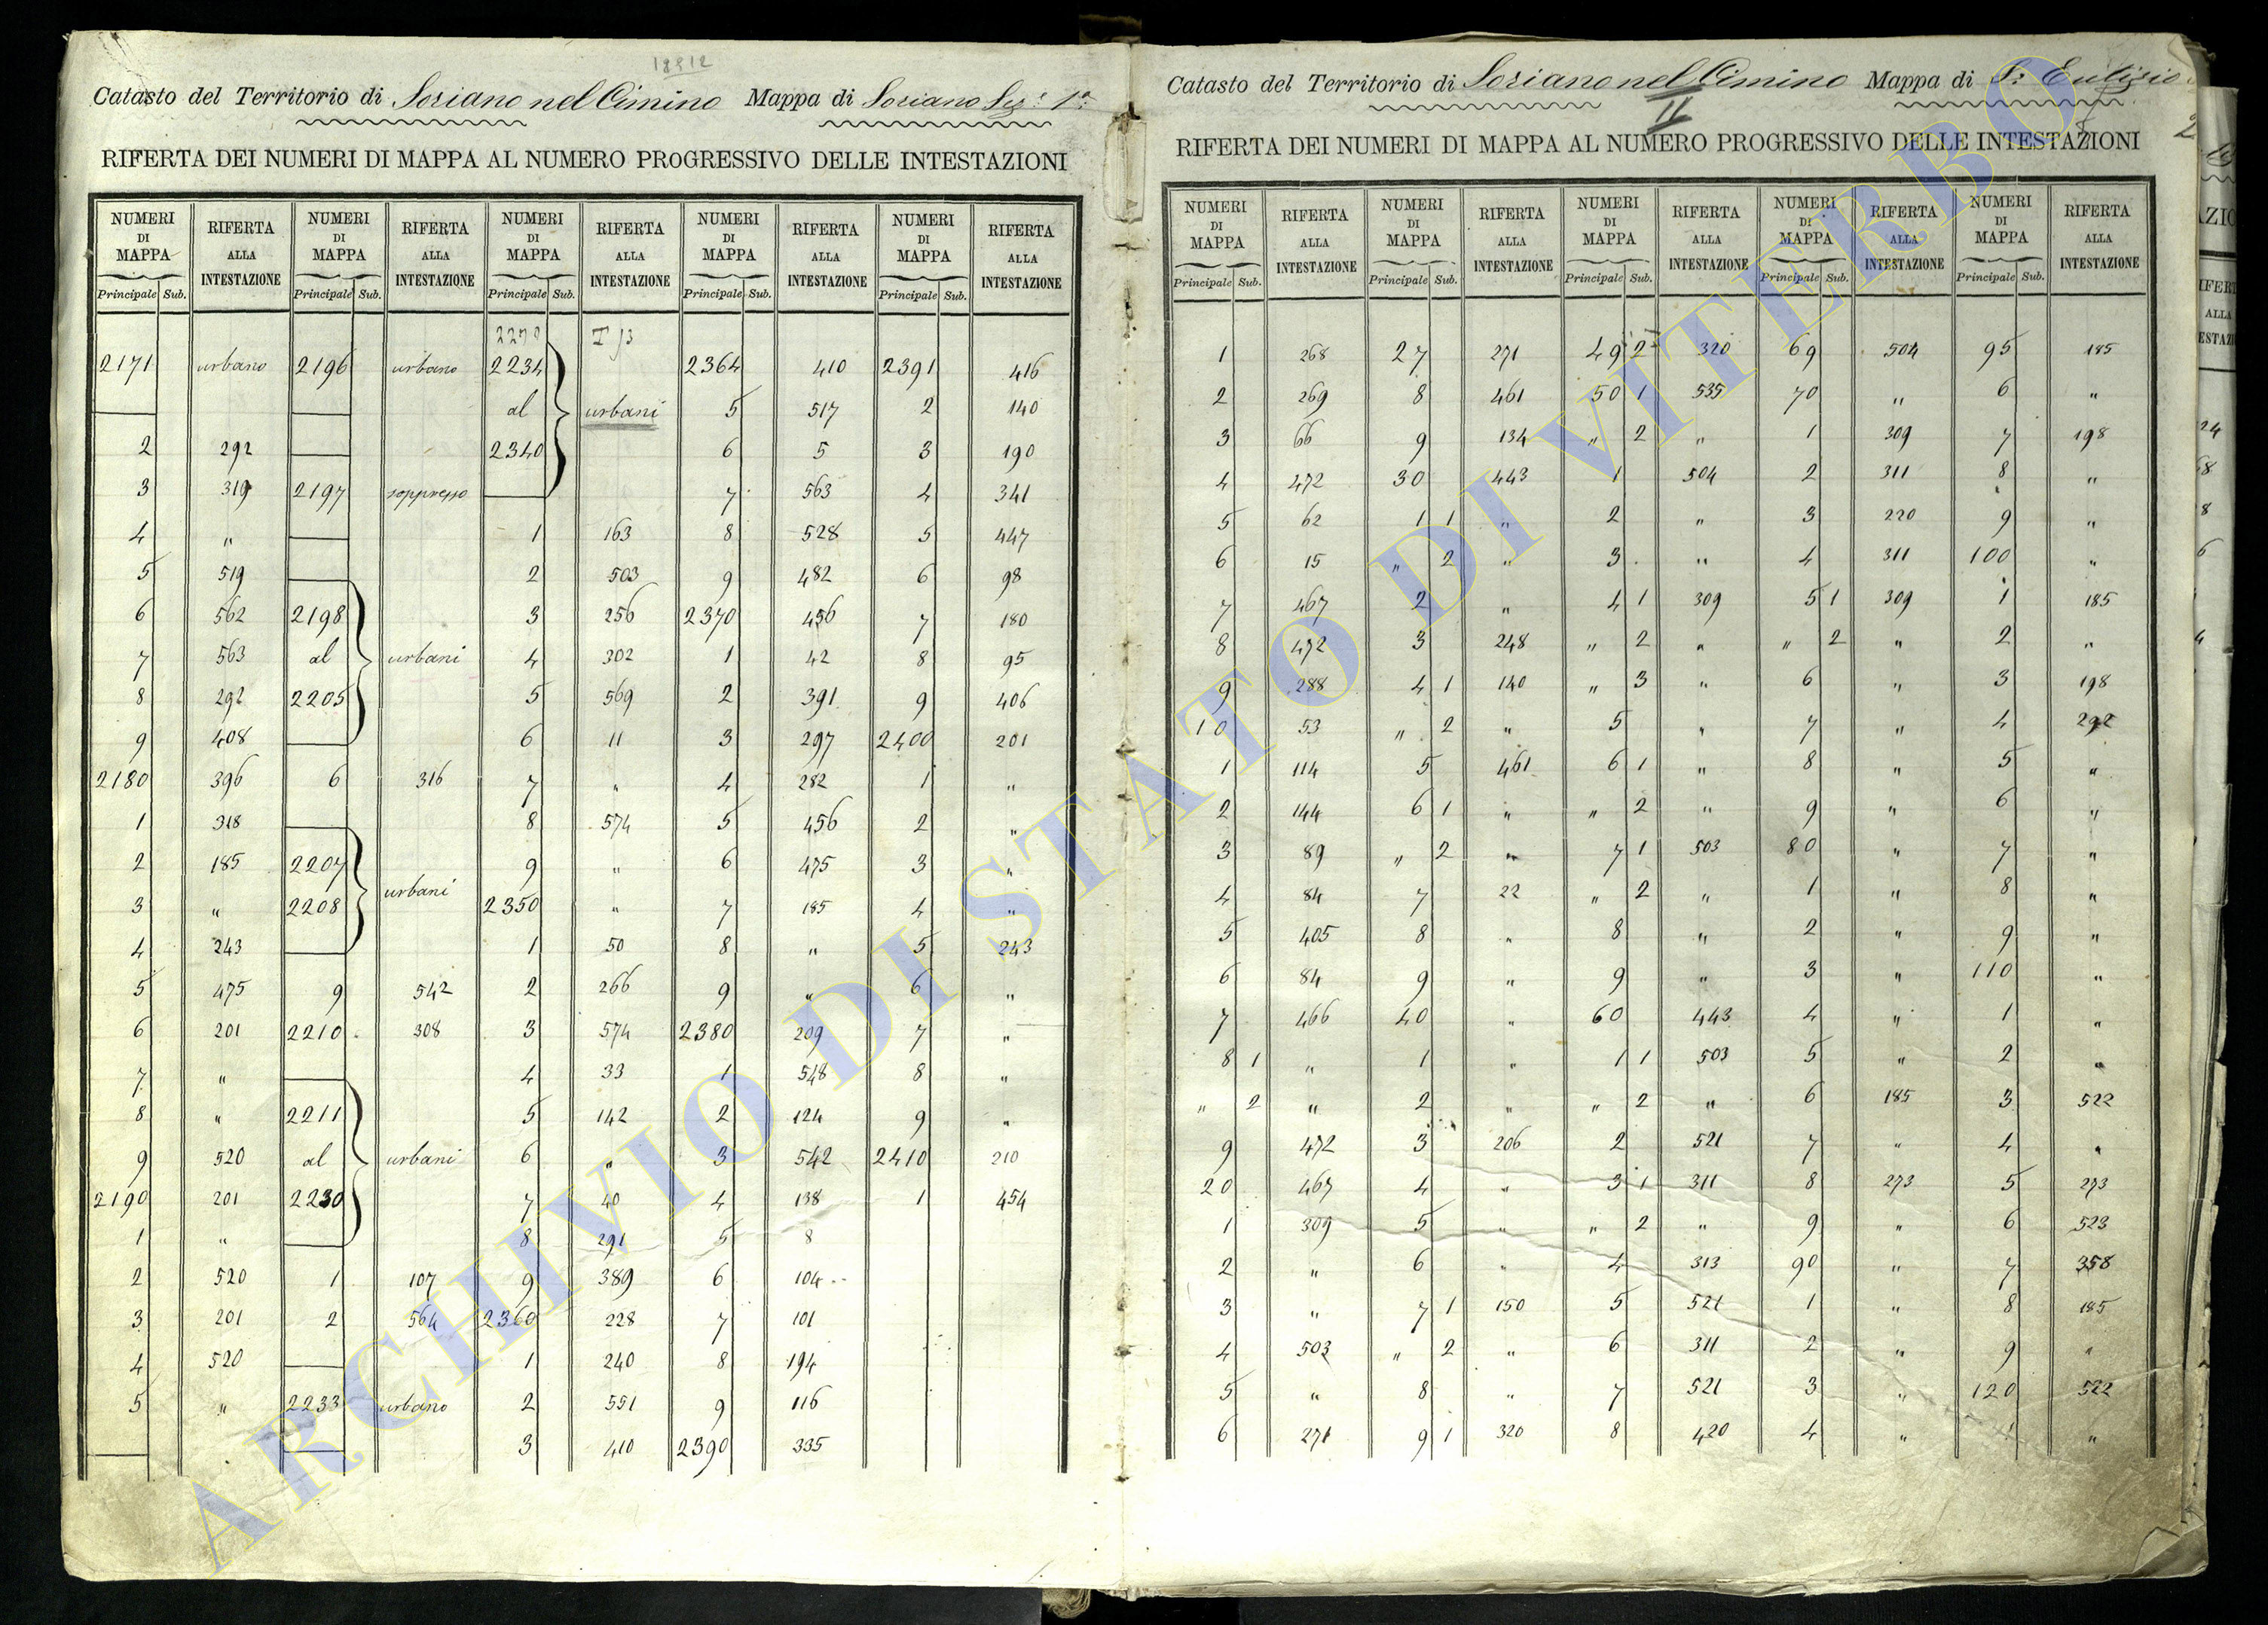 18912
Catasto del Territorio di Soriano nel Cimino Mappa di Soriano Sez. 1ª
RIFERTA DEI NUMERI DI MAPPA AL NUMERO PROGRESSIVO DELLE INTESTAZIONI
NUMERI DI MAPPA RIFERTA ALLA INTESTAZIONE NUMERI DI MAPPA RIFERTA ALLA INTESTAZIONE NUMERI DI MAPPA RIFERTA ALLA INTESTAZIONE NUMERI DI MAPPA RIFERTA ALLA INTESTAZIONE NUMERI DI MAPPA RIFERTA ALLA INTESTAZIONE
Principale Sub. Principale Sub. Principale Sub. Principale Sub. Principale Sub.
2171 urbano 2196 urbano 2234 2364 410 2391 416
al urbani 5 517 2 140
2 292 2340 6 5 3 190
3 319 2197 soppresso 7 563 4 341
4 " 1 163 8 528 5 447
5 519 2 503 9 482 6 98
6 562 2198 3 256 2370 456 7 180
7 563 al urbani 4 302 1 42 8 95
8 292 2205 5 569 2 391 9 406
9 408 6 11 3 297 2400 201
2180 396 6 316 7 " 4 282 1 "
1 318 8 574 5 456 2 "
2 185 2207 9 " 6 475 3 "
3 " 2208 urbani 2350 " 7 185 4 "
4 243 1 50 8 " 5 243
5 475 9 542 2 266 9 " 6 "
6 201 2210 308 3 574 2380 209 7 "
7 " 4 33 1 548 8 "
8 " 2211 5 142 2 124 9 "
9 520 al urbani 6 " 3 542 2410 210
2190 201 2230 7 40 4 138 1 454
1 " 8 291 5 8
2 520 1 107 9 389 6 104
3 201 2 564 2360 228 7 101
4 520 1 240 8 194
5 " 2233 urbano 2 551 9 116
3 410 2390 335
Catasto del Territorio di Soriano nel Cimino Mappa di S. Eutizio
II
RIFERTA DEI NUMERI DI MAPPA AL NUMERO PROGRESSIVO DELLE INTESTAZIONI
NUMERI DI MAPPA RIFERTA ALLA INTESTAZIONE NUMERI DI MAPPA RIFERTA ALLA INTESTAZIONE NUMERI DI MAPPA RIFERTA ALLA INTESTAZIONE NUMERI DI MAPPA RIFERTA ALLA INTESTAZIONE NUMERI DI MAPPA RIFERTA ALLA INTESTAZIONE
Principale Sub. Principale Sub. Principale Sub. Principale Sub. Principale Sub.
1 268 27 271 49 2 320 69 504 95 185
2 269 8 461 50 1 535 70 " 6 "
3 66 9 134 " 2 " 1 309 7 198
4 472 30 443 1 504 2 311 8 "
5 62 1 1 " 2 " 3 220 9 "
6 15 " 2 " 3 " 4 311 100 "
7 467 2 " 4 1 309 5 1 309 1 185
8 472 3 248 " 2 " " 2 " 2 "
9 288 4 1 140 " 3 " 6 " 3 198
10 53 " 2 " 5 " 7 " 4 292
1 114 5 461 6 1 " 8 " 5 "
2 144 6 1 " " 2 " 9 " 6 "
3 89 " 2 " 7 1 503 80 " 7 "
4 84 7 22 " 2 " 1 " 8 "
5 405 8 " 8 " 2 " 9 "
6 84 9 " 9 " 3 " 110 "
7 466 40 " 60 443 4 " 1 "
8 1 " 1 " 1 1 503 5 " 2 "
" 2 " 2 " " 2 " 6 185 3 522
9 472 3 206 2 521 7 " 4 "
20 467 4 " 3 1 311 8 273 5 273
1 309 5 " " 2 " 9 " 6 523
2 " 6 " 4 313 90 " 7 358
3 " 7 1 150 5 521 1 " 8 185
4 503 " 2 " 6 311 2 " 9 "
5 " 8 " 7 521 3 " 120 522
6 271 9 1 320 8 420 4 " 1 "
ARCHIVIO DI STATO DI VITERBO